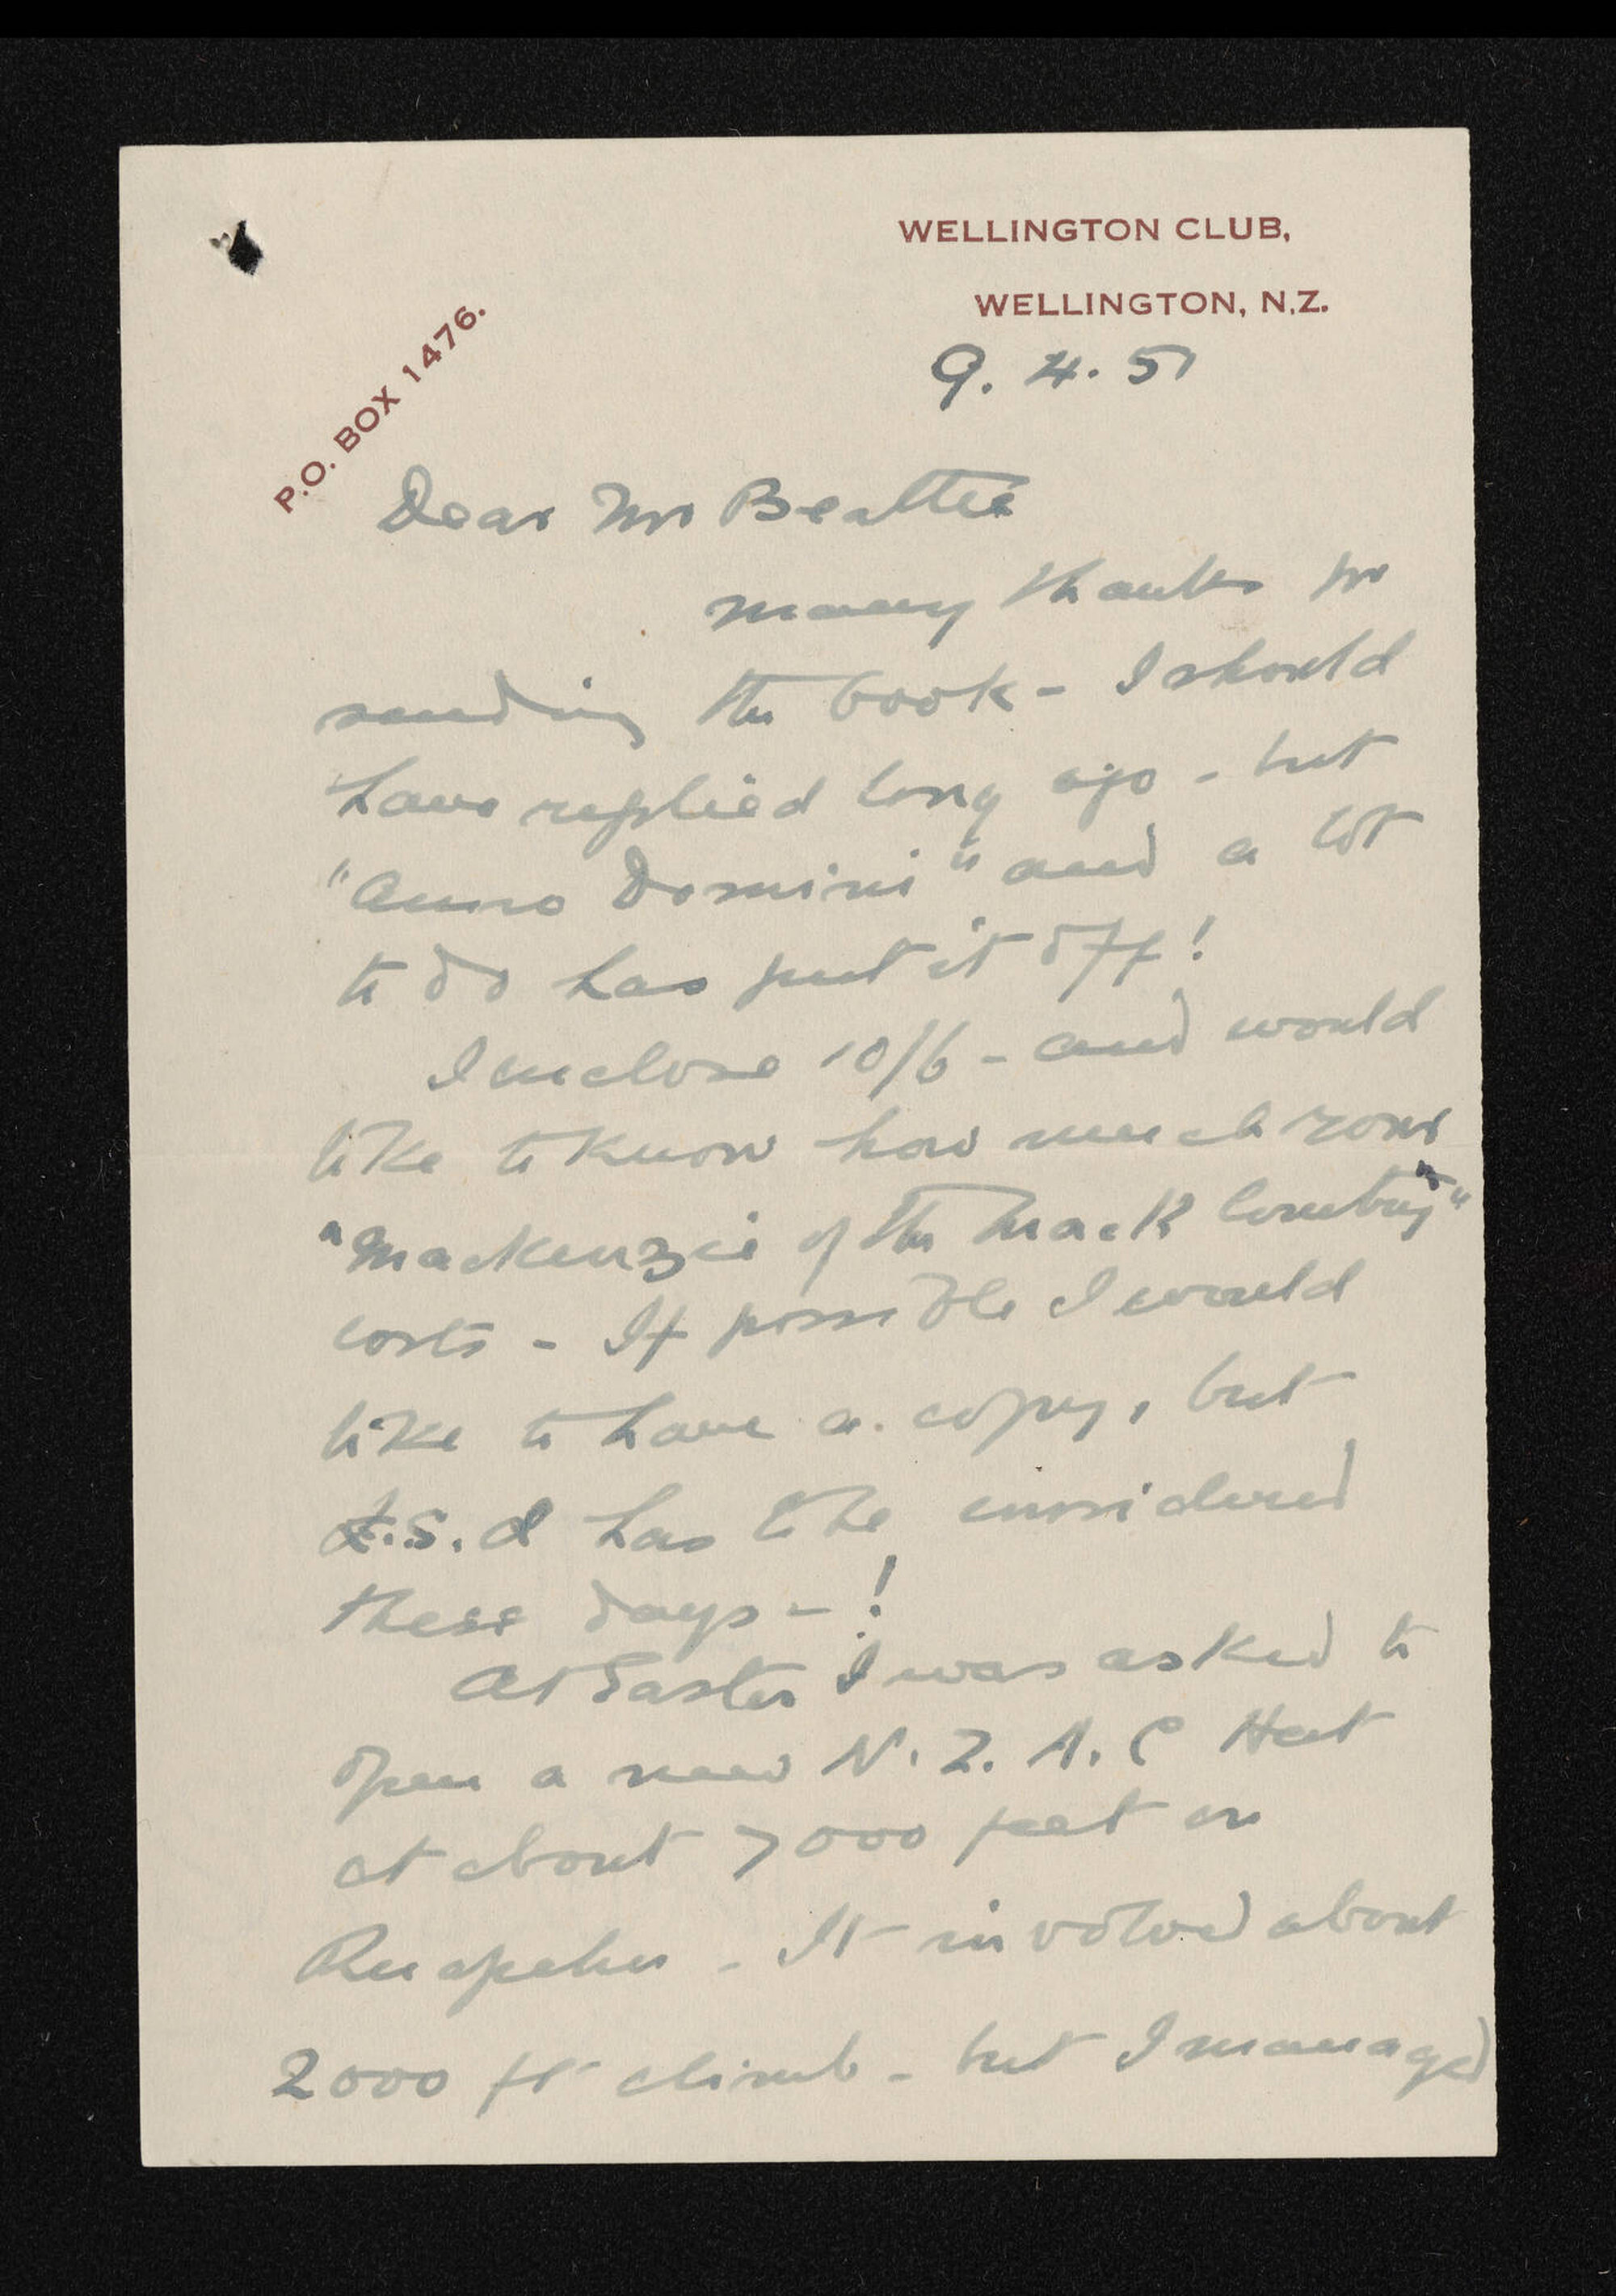 WELLINGTON CLUB,
WELLINGTON, N.Z.
P.O. BOX 1476.
9. 4. 51
Dear Mr Beattie
Many thanks for
sending the book - I should
have replied long ago - but
"Anno Domini" and a lot
to do has put it off!
I enclose 10/6 - and would
like to know how much your
"Mackenzie of the Mack Country"
costs - If possible I would
like to have a copy, but
£.s.d has to be considered
these days - !
At Easter I was asked to
open a new N.Z.A.C Hut
at about 7000 feet on
Ruapehu - It involved about
2000 ft climb - but I managed